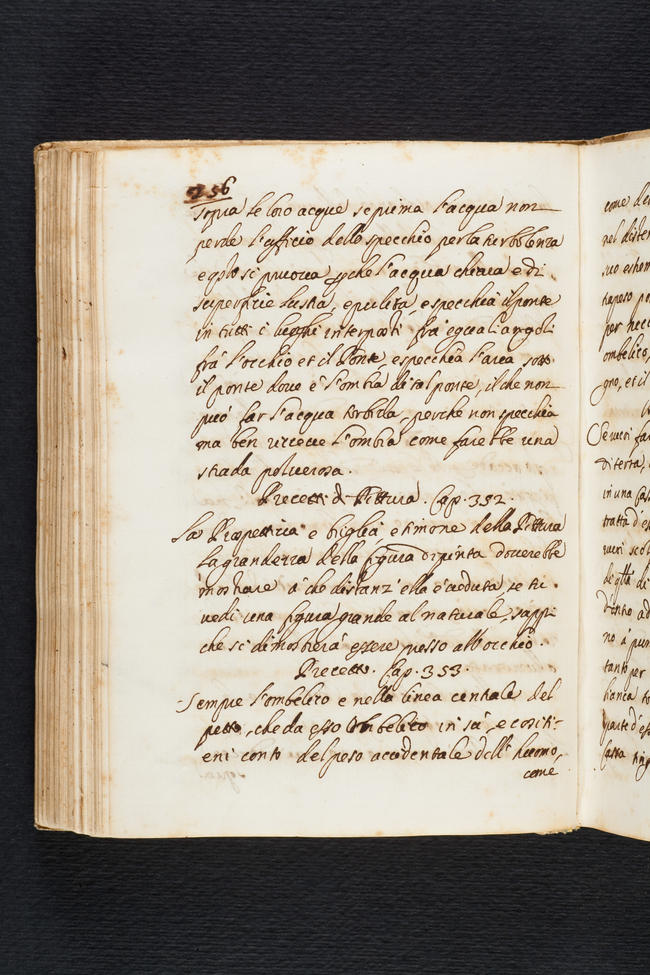 256
sopra le loro acque se prima l'acqua non
perde l'officio dello specchio per la turbolenza
e qsto si pruova che l'acqua chiara e di
superficie lustra, e pulita, e specchia il ponte
in tutti i luoghi interposti frà eguali angoli
frà l'occhio et il Ponte, e specchia l'aria sotto
il ponte dove è l'ombra di tal ponte, il che non
può far l'acqua torbida, perche non specchia
ma ben riceve l'ombra come farebbe una
strada polverosa.
Precetti di Pittura. Cap. 352.
La Prospettiva e briglia, e timone della Pittura
La grandezza della figura dipinta dovrebbe
mostrare à che distanz' ella è veduta, se tu
vedi una figura grande al naturale, sappi
che si dimostrerà essere presso all'occhio.
Precetto. Cap. 353.
Sempre l'ombelico e nella linea centrale del
petto, che da esso ombelico in sù, e cosi ti-
eni conto del peso accidentale dell' huomo,
come
come
nel
suo
per
ombelico,
et il
di terra,
in una
tratta
no à
tanto per
bianca
parte d'